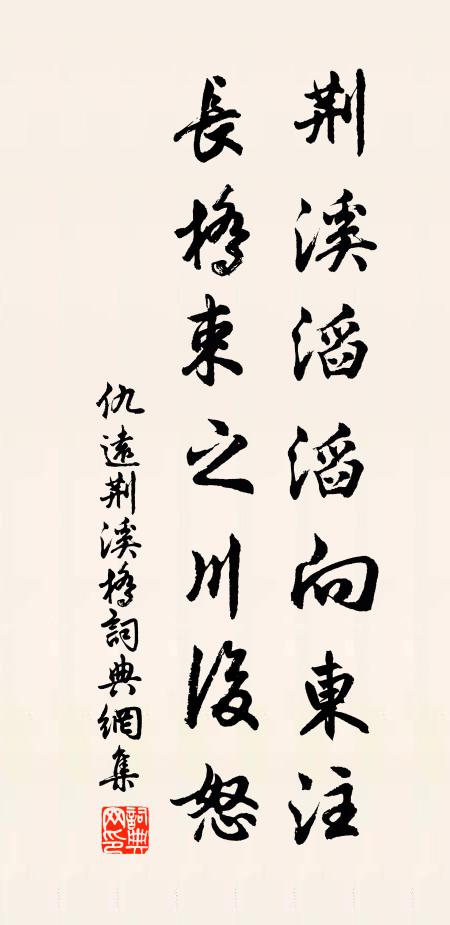 荆溪滔滔向東注
長橋束之川後怒
仇遠荆溪橋詞典網集
詞典网印